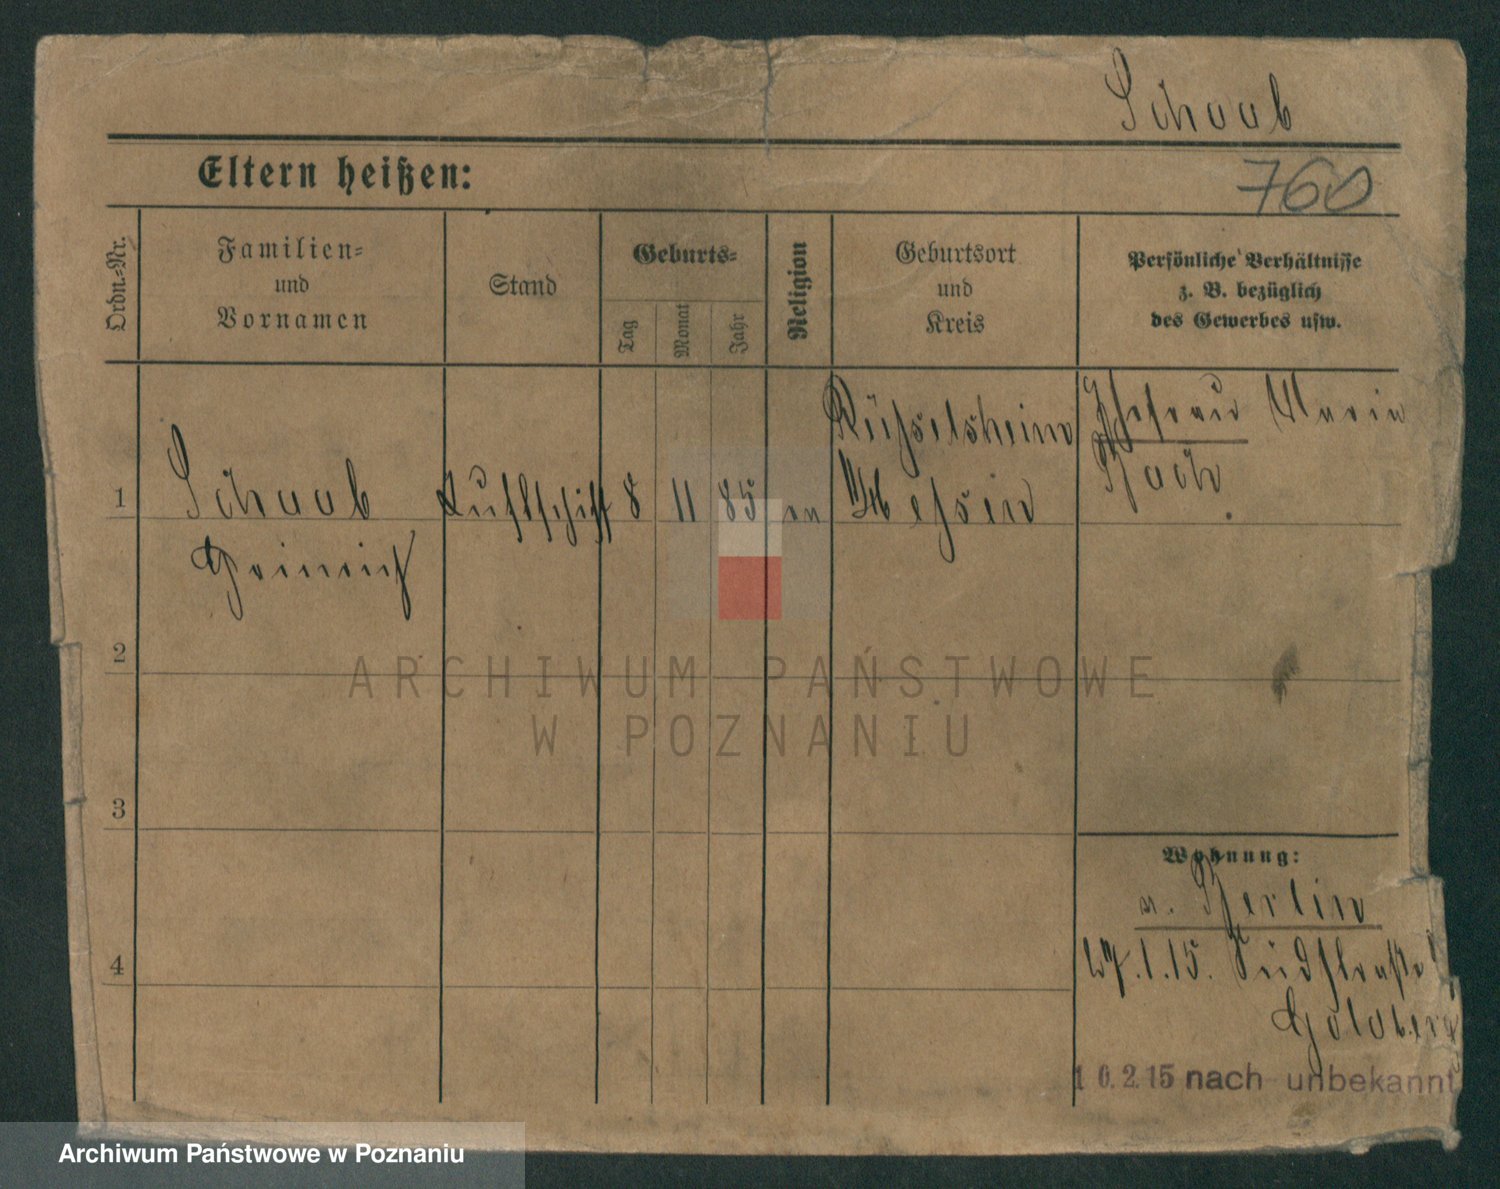 Schaab
Eltern heißen:
760
Ordn.-Nr.
Familien-
und
Vornamen
Stand
Geburts-
Tag
Monat
Jahr
Religion
Geburtsort
und
Kreis
Persönliche Verhältnisse
z. B. bezüglich
des Gewerbes usw.
1
Schaab
Heinrich
Luftschiff
8
11
85
ev
Rüsselsheim
Hessen
Ehefrau Maria
Koch
2
3
4
Wohnung:
v. Berlin
27.1.15. Südstraße
Goldberg
10.2.15 nach unbekannt
ARCHIWUM PAŃSTWOWE
W POZNANIU
Archiwum Państwowe w Poznaniu